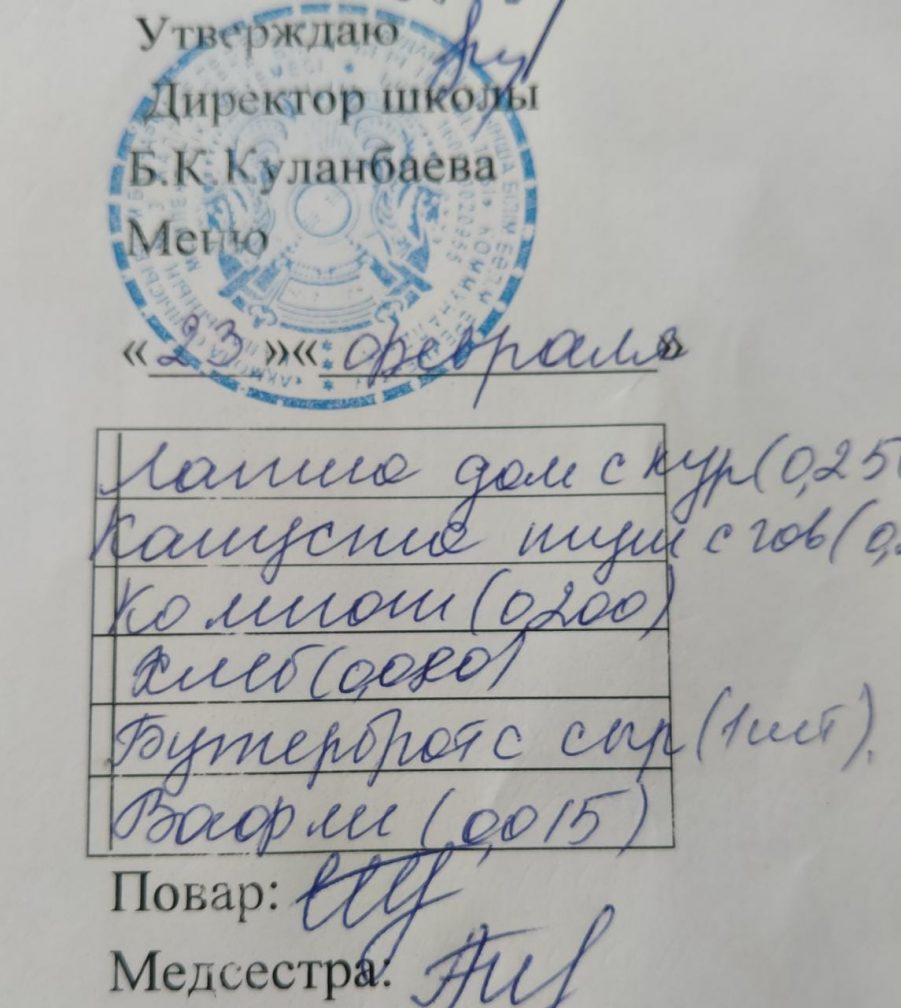 Утверждаю
Директор школы
Б.К.Куланбаева
Меню
«23»«февраля»
Лапша дом с кур(0,250
Капуста туш с гов(0,
Компот(0,200)
Хлеб(0,080)
Бутерброт с сыр(1шт).
Вафли (0,015)
Повар:
Медсестра: